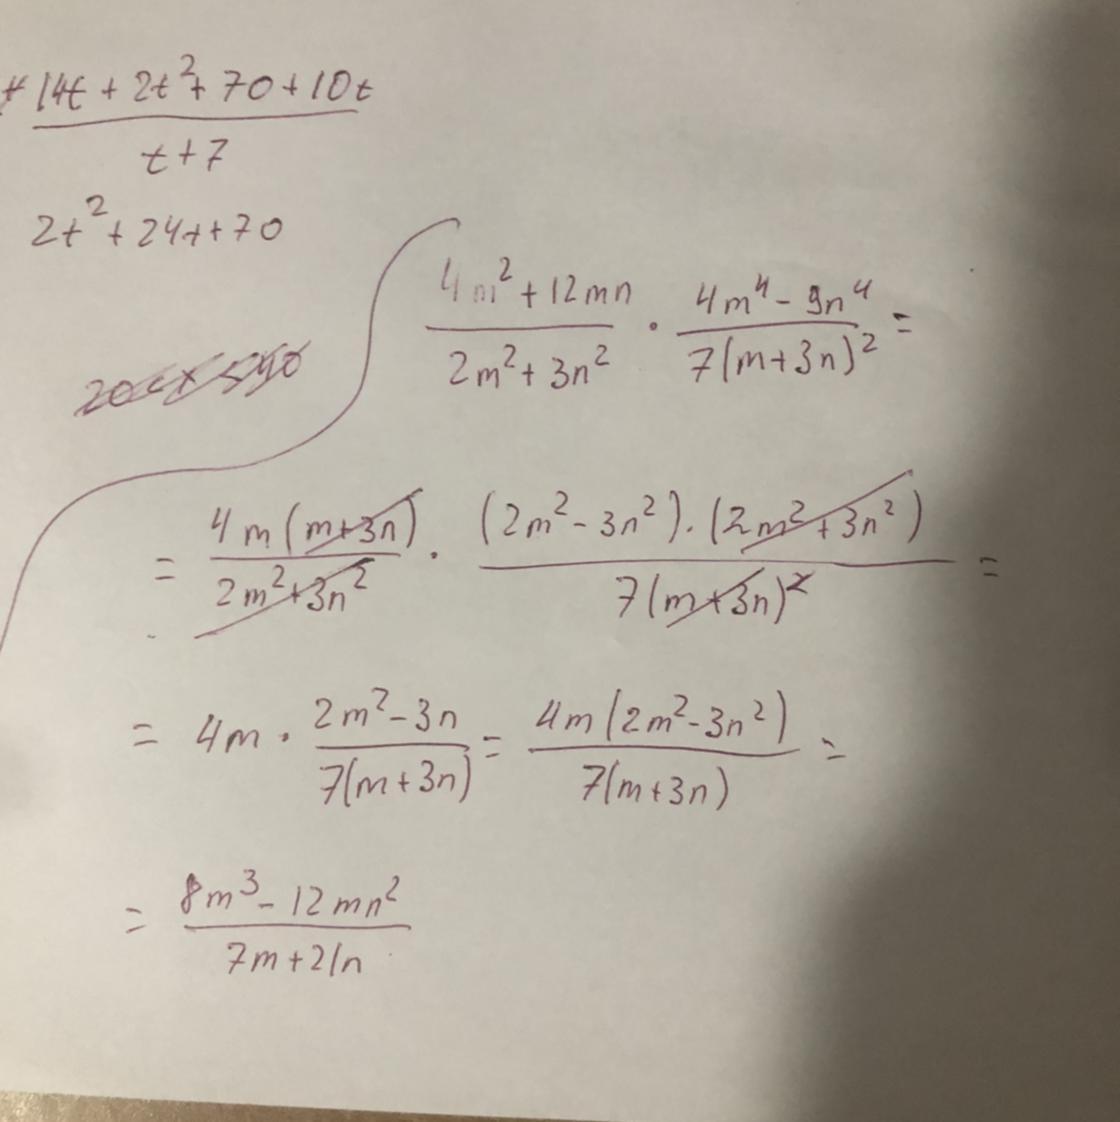 + 14t + 2t² + 70 + 10t
t + 7
2t² + 24t + 70
4m² + 12mn / 2m² + 3n² · 4m⁴ - 9n⁴ / 7(m+3n)² =
= 4m(m+3n) / 2m²+3n² · (2m² - 3n²) · (2m² + 3n²) / 7(m+3n)² =
= 4m · 2m² - 3n / 7(m+3n) = 4m(2m² - 3n²) / 7(m+3n) =
= 8m³ - 12mn² / 7m + 21n